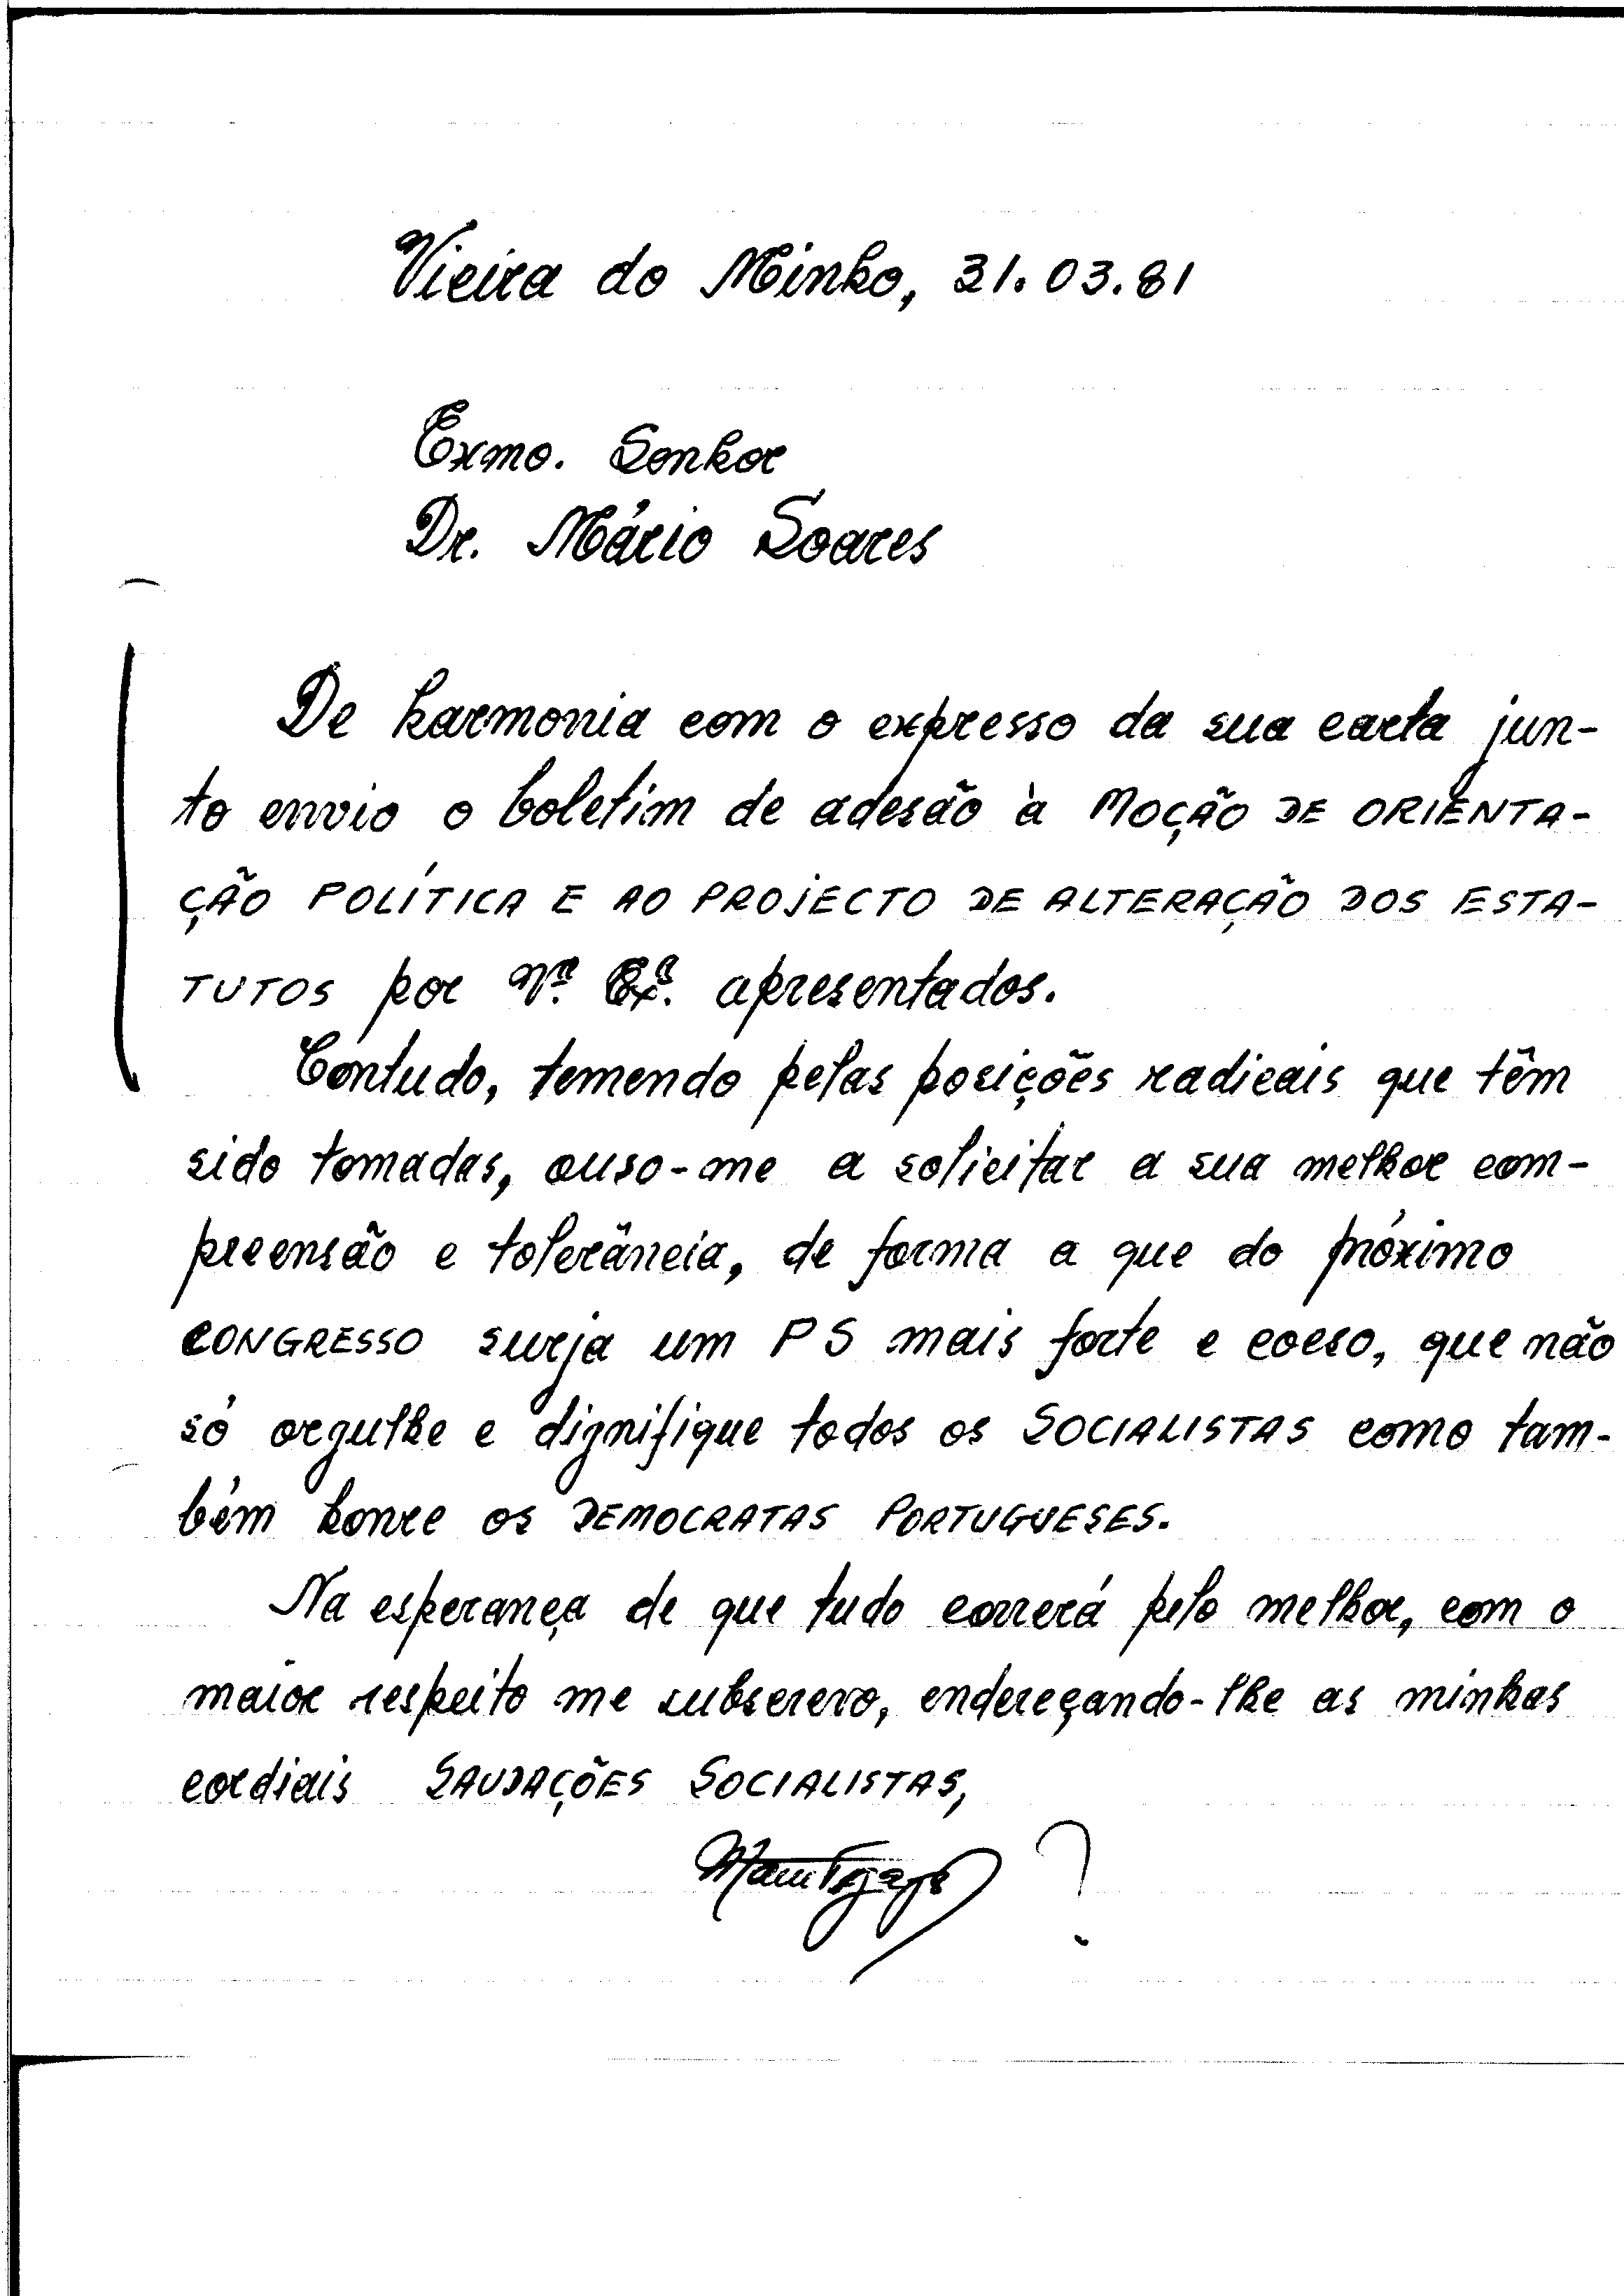 Vieira do Minho, 31.03.81
Exmo. Senhor
Dr. Mário Soares
De harmonia com o expresso da sua carta jun-
to envio o boletim de adesão à MOÇÃO DE ORIENTA-
ÇÃO POLÍTICA E AO PROJECTO DE ALTERAÇÃO DOS ESTA-
TUTOS por Vª. Exª. apresentados.
Contudo, temendo pelas posições radicais que têm
sido tomadas, ouso-me a solicitar a sua melhor com-
preensão e tolerância, de forma a que do próximo
CONGRESSO surja um PS mais forte e coeso, que não
só orgulhe e dignifique todos os SOCIALISTAS como tam-
bém honre os DEMOCRATAS PORTUGUESES.
Na esperança de que tudo correrá pelo melhor, com o
maior respeito me subscrevo, endereçando-lhe as minhas
cordiais SAUDAÇÕES SOCIALISTAS,
?